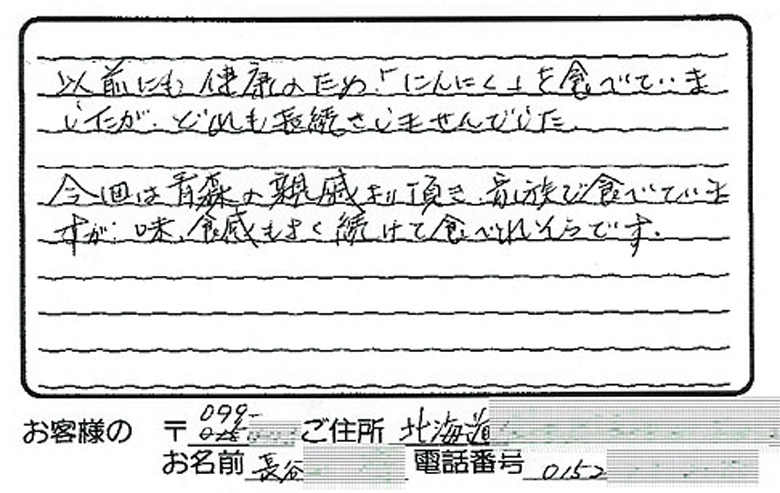 以前にも健康のため「にんにく」を食べていま
したが、どれも長続きしませんでした。
今回は青森の親戚より頂き、家族で食べていま
すが、味、食感もよく続けて食べれそうです。
お客様の 〒 099- ご住所 北海道
お名前 長谷 電話番号 0152